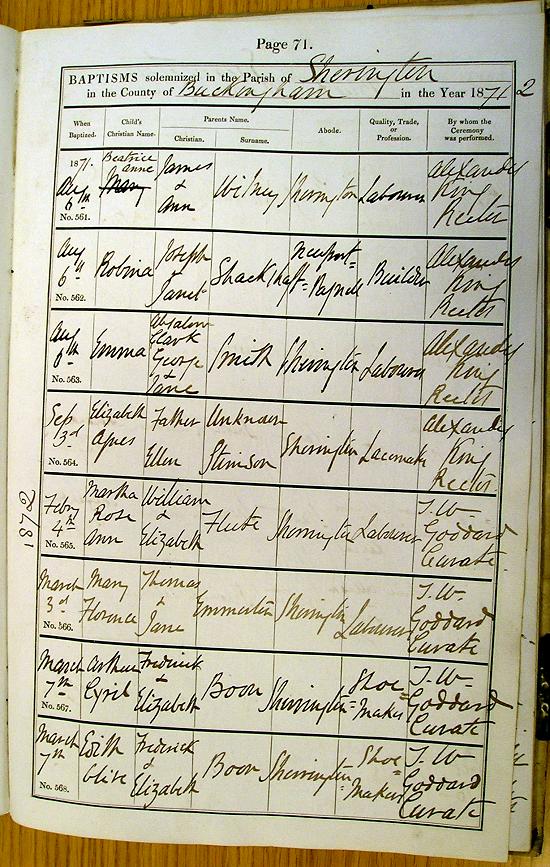 Page 71.
BAPTISMS solemnized in the Parish of Sherington
in the County of Buckingham in the Year 1871 2
When Baptized.
Child's Christian Name.
Parents Name.
Christian.
Surname.
Abode.
Quality, Trade, or Profession.
By whom the Ceremony was performed.
1871.
Aug
6th
No. 561.
Beatrice
anne
Mary
James
&
Ann
Sherington
Labourer
Alexander
King
Rector
Aug
6th
No. 562.
Robina
Joseph
&
Janet
Shack
Newport-
Pagnell
Builder
Alexander
King
Rector
Aug
No. 563.
Emma
Absalom
Clark
George
&
Jane
Smith
Sherington
Labourer
Alexander
King
Rector
Sep
3rd
No. 564.
Elizabeth
Agnes
Father
Ellen
Unknown
Stimson
Sherington
Lacemaker
Alexander
King
Rector
1872
Feby
4th
No. 565.
Martha
Rose
Ann
William
&
Elizabeth
Flute
Sherington
Labourer
J. W.
Goddard
Curate
March
3rd
No. 566.
Mary
Florence
Thomas
&
Jane
Emmerton
Sherington
Labourer
J. W.
Goddard
Curate
March
7th
No. 567.
Arthur
Cyril
Frederick
&
Elizabeth
Boon
Sherington
Shoe-
Maker
J. W.
Goddard
Curate
March
7th
No. 568.
Edith
Olive
Frederick
&
Elizabeth
Boon
Sherington
Shoe-
Maker
J. W.
Goddard
Curate